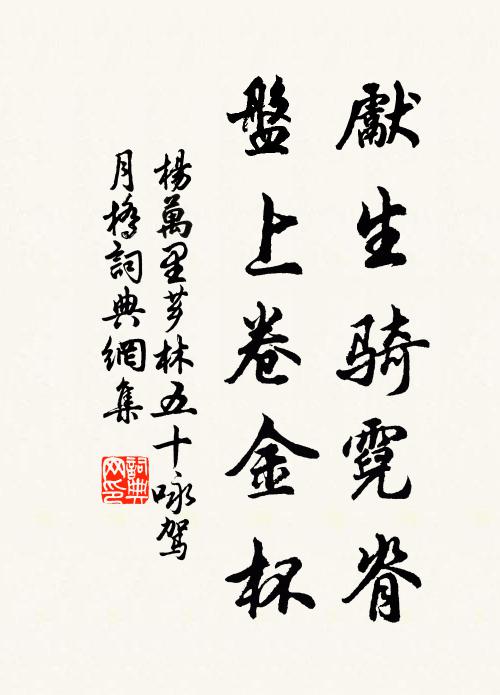 獻生騎霓脊
盤上卷金杯
楊萬里芗林五十咏駕
月橋詞典網集
詞典網印